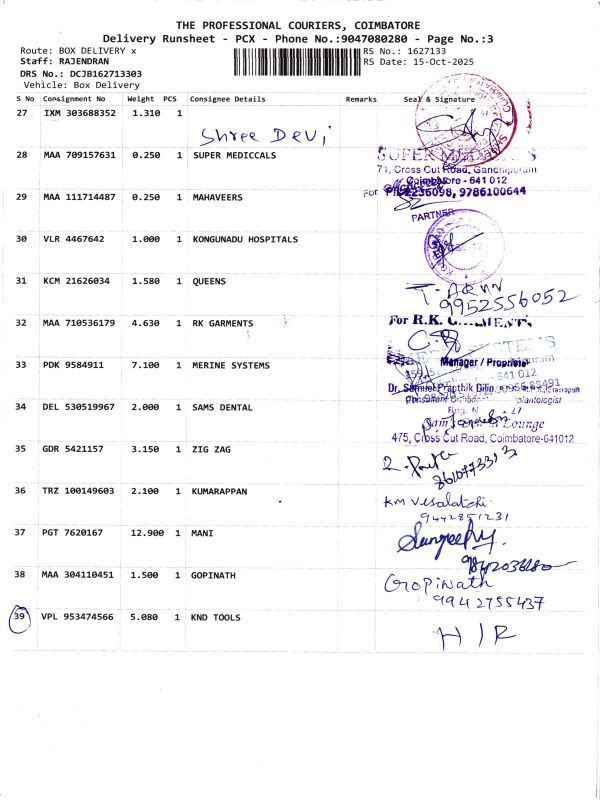 THE PROFESSIONAL COURIERS, COIMBATORE
Delivery Runsheet - PCX - Phone No.:9047080280 - Page No.:3
Route: BOX DELIVERY x RS No.: 1627133
Staff: RAJENDRAN RS Date: 15-Oct-2025
DRS No.: DCJB162713303
Vehicle: Box Delivery
S No Consignment No Weight PCS Consignee Details Remarks Seal & Signature
27 IXM 303688352 1.310 1
Shree Devi
28 MAA 709157631 0.250 1 SUPER MEDICCALS
SUPER
71, Cross Cut Road, Gandhipuram
Coimbatore - 641 012
29 MAA 111714487 0.250 1 MAHAVEERS
For 9786100644
PARTNER
30 VLR 4467642 1.000 1 KONGUNADU HOSPITALS
31 KCM 21626034 1.580 1 QUEENS
9952556052
32 MAA 710536179 4.630 1 RK GARMENTS
For R.K. GARMENTS,
33 PDK 9584911 7.100 1 MERINE SYSTEMS
Manager / Proprietor
641 012
34 DEL 530519967 2.000 1 SAMS DENTAL
Lounge
475, Cross Cut Road, Coimbatore-641012
35 GDR 5421157 3.150 1 ZIG ZAG
36 TRZ 100149603 2.100 1 KUMARAPPAN
KM Vesalatchi
9442851231
37 PGT 7620167 12.900 1 MANI
9842036180
38 MAA 304110451 1.500 1 GOPINATH
Gopinath
9942755437
39 VPL 953474566 5.080 1 KND TOOLS
H/R